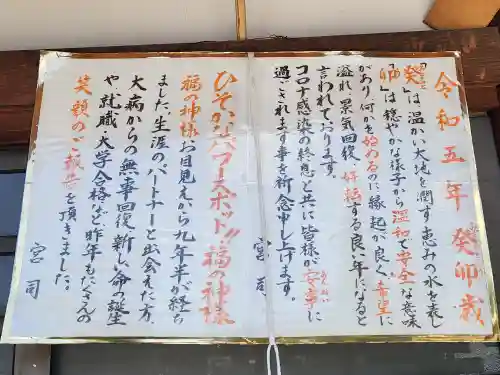 令和五年 癸卯歳
「癸」は温かい大地を潤す恵みの水を表し
「卯」は穏やかな様子から温和で安全な意味
があり、何かを始めるのに縁起が良く、希望に
溢れ、景気回復、好転する良い年になると
言われております。
コロナ感染の終息と共に皆様が安寧に
過ごされます事を祈念申し上げます。
宮司
ひそかなパワースポット!!福の神様
福の神様お目見えから九年半が経ち
ました。生涯のパートナーと出会えた方、
大病からの無事回復、新しい命の誕生
や、就職・大学合格など、昨年もたくさんの
笑顔のご報告を頂きました。
宮司